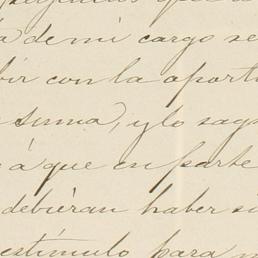 a de mi cargo se
bir con la oport
suma, y lo sag
á que en parte
debiéran haber si
estímulo para